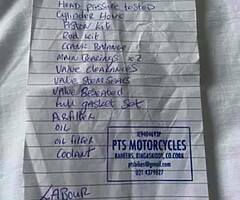 HEAD PRESSURE TESTED
Cylinder Hone
Piston Kit
Rod Kit
CRANK BALANCE
MAIN BEARINGS x 2
VALVE CLEARANCES
VALVE STEM SEALS
VALVE RESEATED
Full gasket set
AIRFILTER
OIL
OIL FILTER
Coolant
PTS MOTORCYCLES
RAHEENS, RINGASKIDDY, CO.CORK
ptsbikes@gmail.com
021 4379827
LABOUR